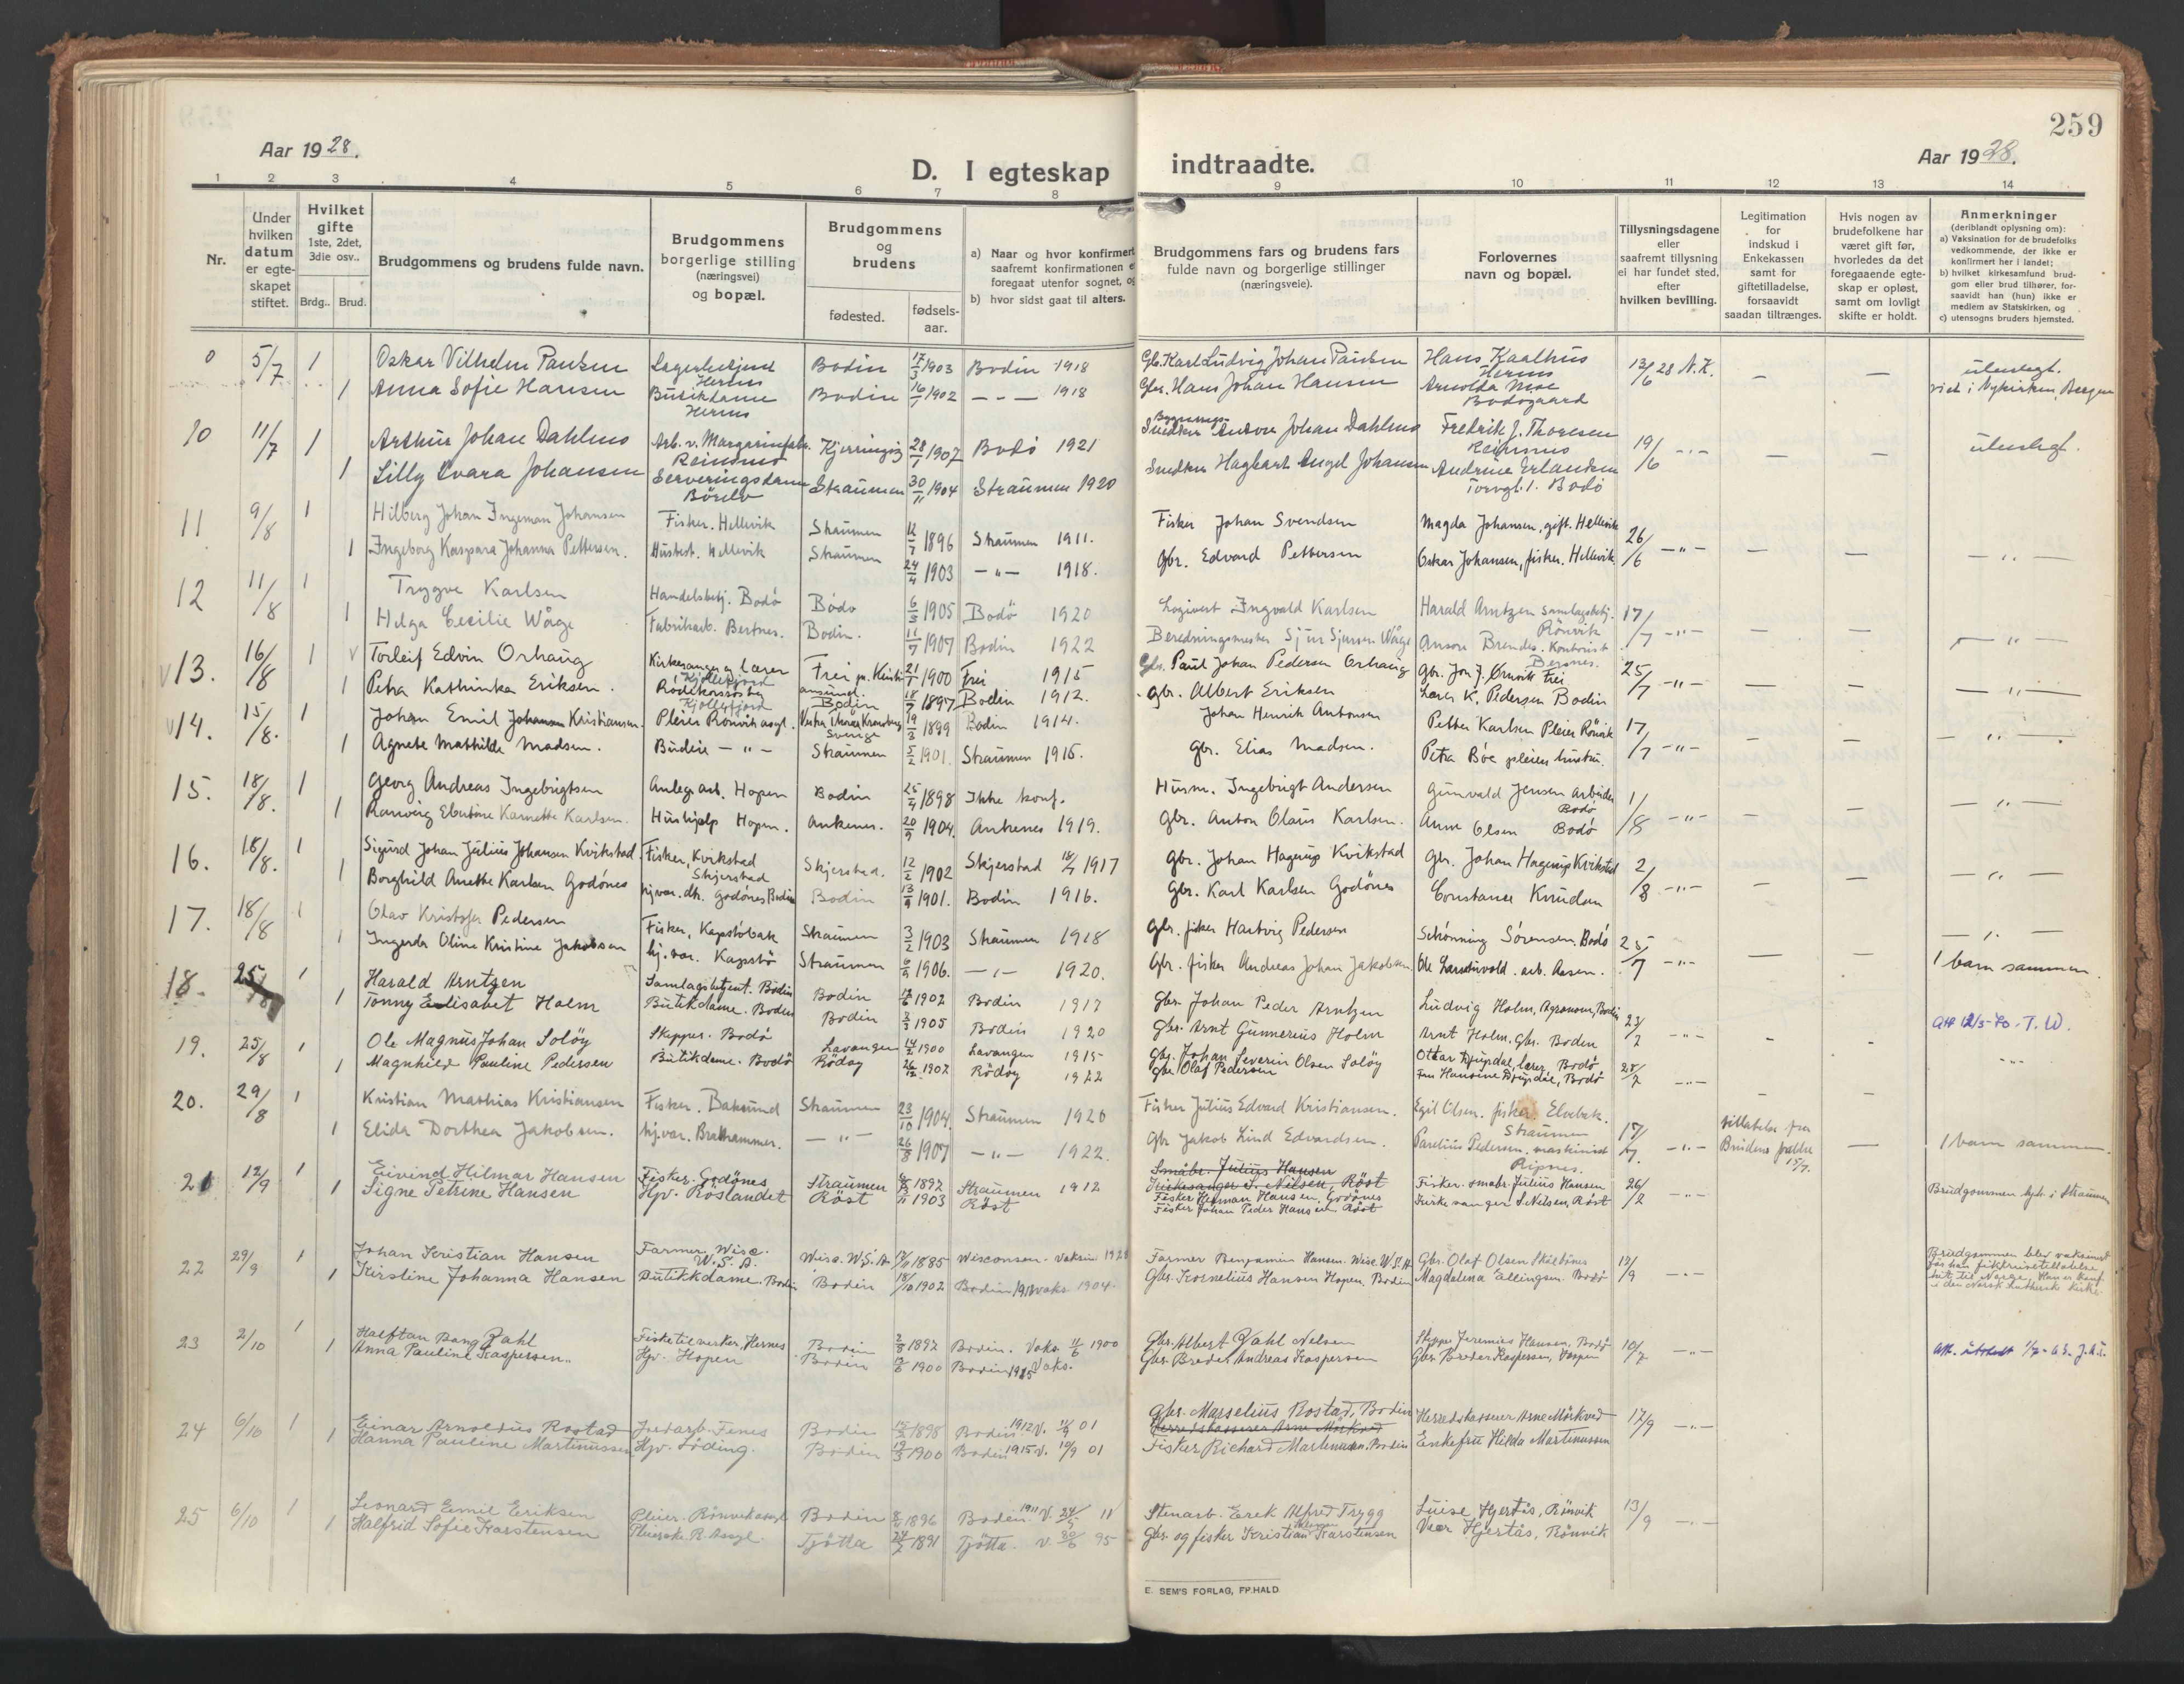 259
Aar 1928.
D. I egteskap indtraadte.
Aar 1928.
1 2 3 4 5 6 7 8 9 10 11 12 13 14
Nr.
Under hvilken datum er egteskapet stiftet.
Hvilket gifte 1ste, 2det, 3die osv..
Brdg.. Brud.
Brudgommens og brudens fulde navn.
Brudgommens borgerlige stilling (næringsvei) og bopæl.
Brudgommens og brudens
fødested.
fødsels-aar.
a) Naar og hvor konfirmert
saafremt konfirmationen
foregaat utenfor sognet,
b) hvor sidst gaat til alters.
Brudgommens fars og brudens fars
fulde navn og borgerlige stillinger
(næringsveie).
Forlovernes
navn og bopæl.
Tillysningsdagene
eller
saafremt tillysning
ei har fundet sted,
efter
hvilken bevilling.
Legitimation
for
indskud i
Enkekassen
samt for
giftetilladelse,
forsaavidt
saadan tiltrænges.
Hvis nogen av
brudefolkene har
været gift før,
hvorledes da det
foregaaende egte-
skap er opløst,
samt om lovligt
skifte er holdt.
Anmerkninger
(deriblandt oplysning om):
a) Vaksination for de brudefolks
vedkommende, der ikke er
konfirmert her i landet;
b) hvilket kirkesamfund brud-
gom eller brud tilhører, for-
saavidt han (hun) ikke er
medlem av Statskirken, og
c) utensogns bruders hjemsted.
5/7 1 Oskar Vilhelm Paulsen Bodin 17/3 1903 Bodin 1918 Gbr. Karl Ludvig Johan Paulsen Hans Kaalhus 13/6 28 N.K. — — utenlegt.
Hernes Hernes
1 Anna Sofie Hansen Butikdame Bodin 16/1 1902 — — 1918 Gbr. Hans Johan Hansen Arnolda Moe viet i Nykirken, Bergen
Hernes Bodogaard
10 11/7 1 Arthur Johan Dahlmo Arb. v. Margarinfabr. Kjerringøy 28/1 1907 Bodö 1921 Snedker Johan Dahlmo Fredrik J. Thoresen 19/6 -"- — — utenlegt.
1 Lilly Svara Johansen Serveringsdame Straumen 30/11 1904 Straumen 1920 Snedker Hagbart Angel Johansen Andrine Erlandsen
Torvgt. 1. Bodö
11 9/8 1 Hilberg Johan Ingeman Johansen Fisker. Hellevik Straumen 12/7 1896 Straumen 1911. Fisker Johan Svendsen Magda Johansen, gift. Hellevik 26/6 -"- — — — " —
1 Ingeborg Kaspara Johanna Pettersen. Husbest. Hellevik Straumen 24/4 1903 -"- 1918. Gbr. Edvard Pettersen Oskar Johansen, fisker. Hellevik
12 11/8 1 Trygve Karlsen Handelsbetj. Bodö Bodö 6/3 1905 Bodö 1920 Logivert Ingvald Karlsen Harald Arntzen Samlagsbetj. 17/7 -"- — — — " —
Rönvik
1 Helga Cecilie Wåge Fabrikarb. Bertnes. Bodin. 11/7 1907 Bodin 1922 Beredningsmester Sjur Sjursen Wåge Brendes. Kontorist
13. 16/8 1 Torleif Edvin Orhaug Kirkesanger og lærer Frei pr. Kristiansund. 21/1 1900 Frei 1915 Gbr. Paul Johan Pedersen Orhaug Gbr. Jon J. Ørnvik Frei 25/7 -"- — — — " —
Kjøllefjord
1 Petra Kathinka Eriksen. Rödekorssöster Bodin 18/7 1897 Bodin 1912. gbr. Albert Eriksen Lærer K. Pedersen Bodin
Kjøllefjord
14. 15/8. 1 Johan Emil Johansen Kristiansen. Pleier Rönvik asyl. 19/3 1899 Bodin 1914. Johan Henrik Antonsen Petter Karlsen Pleier Rönvik 17/7 -"- — — — " —
Sverige
1 Agnete Mathilde Madsen. Budeie -"- Straumen 5/2 1901. Straumen 1915. gbr. Elias Madsen. Petra Böe pleier hustru.
15. 18/8. 1 Georg Andreas Ingebrigtsen Anlegs arb. Hopen Bodin 25/4 1898 Ikke konf. Husm. Ingebrigt Andersen Gunvald Jensen Arbeider 1/8 -"- — — — " —
Bodö
1 Ranveig Karnette Karlsen. Hushjelp Hopen. Ankenes. 20/9 1904. Ankenes 1919. gbr. Anton Olaus Karlsen. Anne Olsen Bodö
16. 18/8. 1 Sigurd Johan Julius Johansen Kvikstad. Fisker, Kvikstad Skjerstad. 12/2 1902 Skjerstad 1917 gbr. Johan Hagerup Kvikstad Gbr. Johan Hagerup Kvikstad 2/8 -"- — — — " —
Skjerstad
1 Borghild Anette Karlsen Godönes hj.var. dtr. Godönes Bodin Bodin 13/9 1901. Bodin 1916. gbr. Karl Karlsen Godönes Constance Knudsen
17. 18/8 1 Olav Kristofer Pedersen Fisker, Kapstöbak Straumen 3/2 1903 Straumen 1918 gbr. fisker Hartvig Pedersen Schönning Sörensen. Bodö 25/7 -"- — — — " —
1 Ingerda Oline Kristine Jakobsen hj.var. Kapstö Straumen 6/9 1906. — " — 1920. Gbr. fisker Andreas Johan Jakobsen. arb. Aasen. 1 barn sammen.
18. 25/8 1 Harald Arntzen Samlagsbetjent. Bodin Bodin 1902 Bodin 1917 Gbr. Johan Peder Arntzen Ludvig Holm, Agronom, Bodin 23/7 -"-
1 Tonny Elisabet Holm Butikdame. Bodin Bodin 1905 Bodin 1920 gbr. Arnt Gunnerius Holm Arnt Holm, Gbr. Bodin
19. 25/8 1 Ole Magnus Johan Solöy Skipper. Bodö Lavangen 1900 Lavangen 1915 Gbr. Johan Severin Olsen Solöy Ottar Djupdal, lærer, Bodö
1 Magnhild Pauline Pedersen Butikdame. Bodö Rödöy 26/12 1902 Rödöy 1922 Gbr. Olaf Pedersen Fru Hansine Djupdal, Bodö
20. 29/8 1 Kristian Mathias Kristiansen Fisker. Baksund Straumen 23/10 1904. Straumen 1920 Fisher Julius Edvard Kristiansen. Egil Olsen. fisker. Elvebak. 17/7. -"- tillatelse fra
Straumen
1 Elida Dorthea Jakobsen. hj.var. Brathammer. — " — 26/8 1907 -"- 1922. Gbr. Jakob Lind Edvardsen. Parelius Pedersen, maskinist Brudens 15/7. — 1 barn sammen.
Ripnes.
21 12/9 1 Eivind Hilmar Hansen Fisker. Godönes Straumen 1892 Straumen 1912 Småbr. Julius Hansen Fisker. småbr. Julius Hansen -"- Brudgommen i Straumen
Kirkesanger S. Nilsen, Röst
1 Signe Petrine Hansen Hjv. Röslandet Röst 1903 Röst Fisker Herman Hansen, Godönes Kirkesanger S. Nilsen, Röst
Fisker Johan Peder Hansen. Röst
22 29/9 1 Johan Kristian Hansen Farmer, Wisc. U.S.A. Wisc. U.S.A. 1885 Wisconsen. Vaksin. 1928 Farmer Benjamin Hansen. Wisc. U.S.A. Gbr. Olaf Olsen 12/9 -"- Brudgommen blev vaksinert
før han fik reisetillatelse
hit til Norge. Han er konf.
i den Norsk Lutherske kirke.
1 Kirstine Johanna Hansen Butikkdame. Bodin Bodin 18/10 1902 Bodin vaks 1904. Gbr. Kornelius Hansen Hopen, Bodin Magdalena Ellingsen. Bodö
23 2/10 1 Halftan Bang Zahl Fisketilvirker, Hernes Bodin 1892 Bodin. Vaks. 11/6 1900 Gbr. Albert Zahl Nelsen Skipper Jeremias Hansen, Bodö 10/7 -"-
1 Anna Pauline Kaspersen. Hjv. Hopen Bodin 1900 Bodin 1915 Vaks. Gbr. Breder Andreas Kaspersen Gbr. Breder Kaspersen, Hopen
24 6/10 1 Einar Arnoldus Rostad Jordarb. Fenes Bodin 15/2 1898 Bodin 1912 V. 01 Gbr. Marselius Rostad, Bodin Herredskasserer Arne Mörkved 17/9 -"-
Herredskasserer Arne Mörkved
1 Hanna Pauline Martinussen Hjv. Löding. Bodin 1900 Bodin 1915 V. 01 Fisker Richard Martinussen. Bodin Enkefru Hilda Martinussen
25 6/10 1 Leonard Emil Eriksen Pleier. Rönvik asyl Bodin 1896 Bodin 1911 V. 24/9 11 Stenarb. Erek Alfred Trygg Luise Hjertås, Rönvik 13/9 -"-
1 Halfrid Sofie Karstensen Pleierske R. Asyl. Tjötta 24/7 1891 Tjötta. V. 30/6 95 Gbr. og fisker Kristian Karstensen Hjertås, Rönvik
E. SEM'S FORLAG, FR.HALD